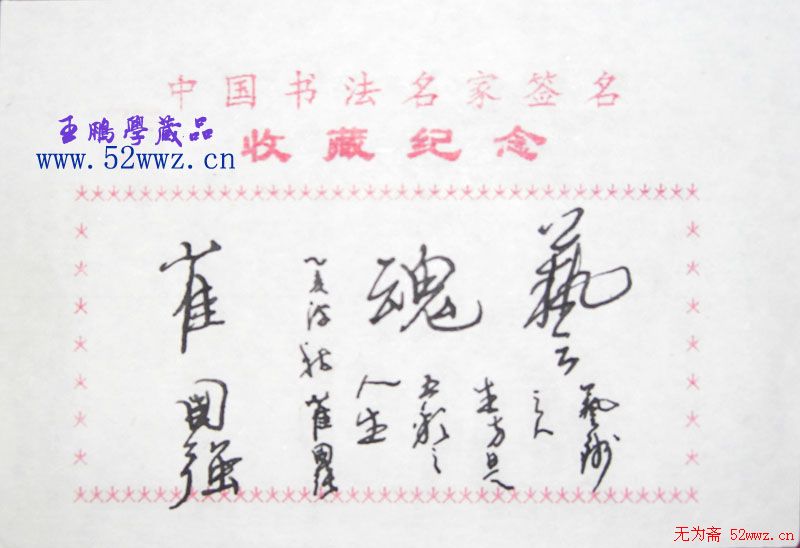 中国书法名家签名
王鹏學藏品
收藏纪念
www.52wwz.cn
藝
魂
藝術
之人
五彩之
人生
崔国强
崔国强
无为斋 52wwz.cn